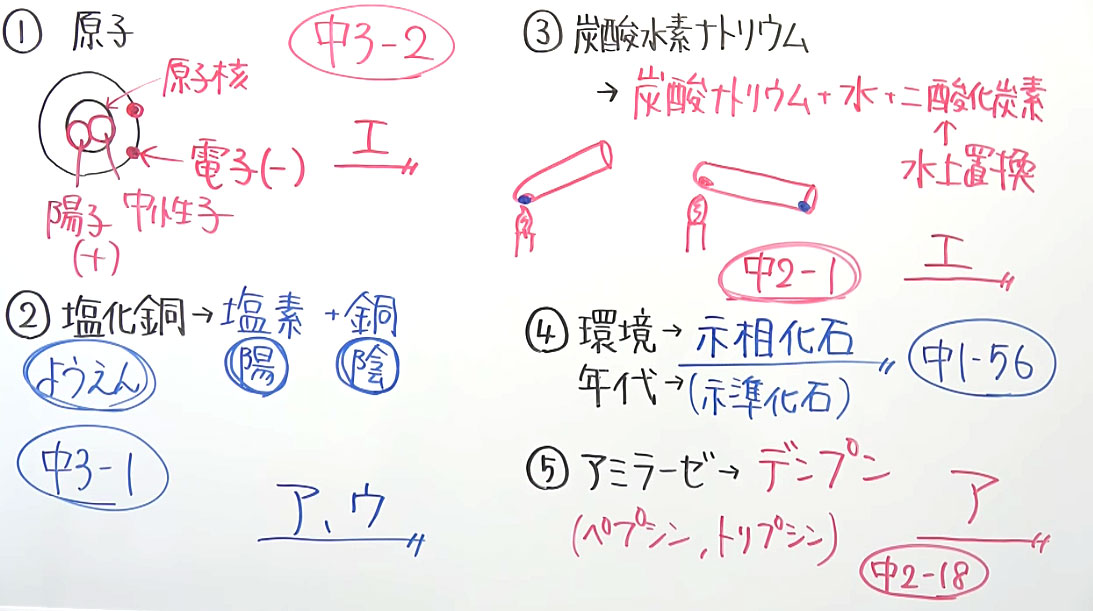 ① 原子
中3-2
原子核
電子(-)
陽子 中性子
(+)
エ
② 塩化銅→塩素+銅
ようえん
陽 陰
中3-1
ア、ウ
③ 炭酸水素ナトリウム
→ 炭酸ナトリウム+水+二酸化炭素
↑
水上置換
中2-1
エ
④ 環境→示相化石
年代→(示準化石)
中1-56
⑤ アミラーゼ→デンプン
(ペプシン,トリプシン)
ア
中2-18